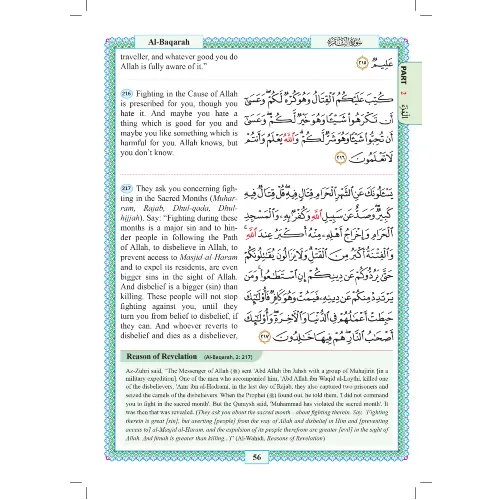 Al-Baqarah
سورة البقرة
traveller, and whatever good you do
Allah is fully aware of it."
عَلِيمٌ ٢١٥
PART 2
216 Fighting in the Cause of Allah
is prescribed for you, though you
hate it. And maybe you hate a
thing which is good for you and
maybe you like something which is
harmful for you. Allah knows, but
you don't know.
كُتِبَ عَلَيْكُمُ الْقِتَالُ وَهُوَ كُرْهٌ لَّكُمْ وَعَسَىٰ
أَن تَكْرَهُوا شَيْئًا وَهُوَ خَيْرٌ لَّكُمْ وَعَسَىٰ
أَن تُحِبُّوا شَيْئًا وَهُوَ شَرٌّ لَّكُمْ وَاللَّهُ يَعْلَمُ وَأَنتُمْ
لَا تَعْلَمُونَ ٢١٦
217 They ask you concerning figh-
ting in the Sacred Months (Muhar-
ram, Rajab, Dhul-qada, Dhul-
hijjah). Say: "Fighting during these
months is a major sin and to hin-
der people in following the Path
of Allah, to disbelieve in Allah, to
prevent access to Masjid al-Haram
and to expel its residents, are even
bigger sins in the sight of Allah.
And disbelief is a bigger (sin) than
killing. These people will not stop
fighting against you, until they
turn you from belief to disbelief, if
they can. And whoever reverts to
disbelief and dies as a disbeliever,
يَسْأَلُونَكَ عَنِ الشَّهْرِ الْحَرَامِ قِتَالٍ فِيهِ قُلْ قِتَالٌ فِيهِ
كَبِيرٌ وَصَدٌّ عَن سَبِيلِ اللَّهِ وَكُفْرٌ بِهِ وَالْمَسْجِدِ
الْحَرَامِ وَإِخْرَاجُ أَهْلِهِ مِنْهُ أَكْبَرُ عِندَ اللَّهِ
وَالْفِتْنَةُ أَكْبَرُ مِنَ الْقَتْلِ وَلَا يَزَالُونَ يُقَاتِلُونَكُمْ
حَتَّىٰ يَرُدُّوكُمْ عَن دِينِكُمْ إِنِ اسْتَطَاعُوا وَمَن
يَرْتَدِدْ مِنكُمْ عَن دِينِهِ فَيَمُتْ وَهُوَ كَافِرٌ فَأُولَٰئِكَ
حَبِطَتْ أَعْمَالُهُمْ فِي الدُّنْيَا وَالْآخِرَةِ وَأُولَٰئِكَ
أَصْحَابُ النَّارِ هُمْ فِيهَا خَالِدُونَ ٢١٧
Reason of Revelation (Al-Baqarah, 2: 217)
Az-Zuhri said, "The Messenger of Allah (ﷺ) sent 'Abd Allah ibn Jahsh with a group of Muhajirin [in a
military expedition]. One of the men who accompanied him, 'Abd Allah ibn Waqid al-Laythi, killed one
of the disbelievers, 'Amr ibn al-Hadrami, in the last day of Rajab; they also captured two prisoners and
seized the camels of the disbelievers. When the Prophet (ﷺ) found out, he told them, 'I did not command
you to fight in the sacred month'. But the Quraysh said, 'Muhammad has violated the sacred month'. It
was then that was revealed. (They ask you about the sacred month - about fighting therein. Say, 'Fighting
therein is great [sin], but averting [people] from the way of Allah and disbelief in Him and [preventing
access to] al-Masjid al-Haram, and the expulsion of its people therefrom are greater [evil] in the sight of
Allah. And fitnah is greater than killing...')" (Al-Wahidi, Reasons of Revelation)
56